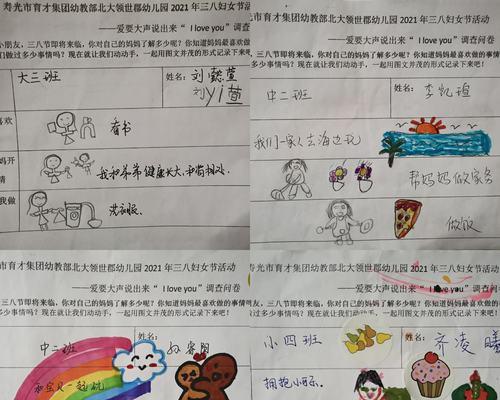 寿光市育才集团幼教部北大领世郡幼儿园 2021 年三八妇女节活动
——爱要大声说出来“ I love you”调查问卷
小朋友，三八节即将来临，你对自己的妈妈了解多少呢？你知道妈妈最喜欢做
们做过多少事情吗？现在就让我们动动手，一起用图文并茂的形式记录下来吧！
大三班
姓名：刘懿萱
刘yi萱
喜欢
看书
妈开
情
我和弟弟健康长大、和苗相处.
我做
洗衣服.
寿光市育才集团幼教部北大领世郡幼儿园 2021 年三八妇女节活动
——爱要大声说出来“ I love you”调查问卷
三八节即将来临，你对自己的妈妈了解多少呢？你知道妈妈最喜欢做的事情
多少事情吗？现在就让我们动动手，一起用图文并茂的形式记录下来吧！
中二班
姓名：
李凯瑄
我们一家人去海边玩
帮妈妈做家务
做饭
市育才集团幼教部北大领世郡幼儿园 2021 年三八妇女节活动
——爱要大声说出来“ I love you”调查问卷
三八节即将来临，你对自己的妈妈了解多少呢？你知道妈妈最喜欢做的事
多少事情吗？现在就让我们动动手，一起用图文并茂的形式记录下来吧！
中二班
姓名：
和宝贝一起玩
光市育才集团幼教部北大领世郡幼儿园 2021 年三八妇女节活动
——爱要大声说出来“ I love you”调查问卷
三八节即将来临，你对自己的妈妈了解多少呢？你知道妈妈最喜欢做的事情
多少事情吗？现在就让我们动动手，一起用图文并茂的形式记录下来吧！
小四班
姓名：
齐凌曦
拥抱小可乐.